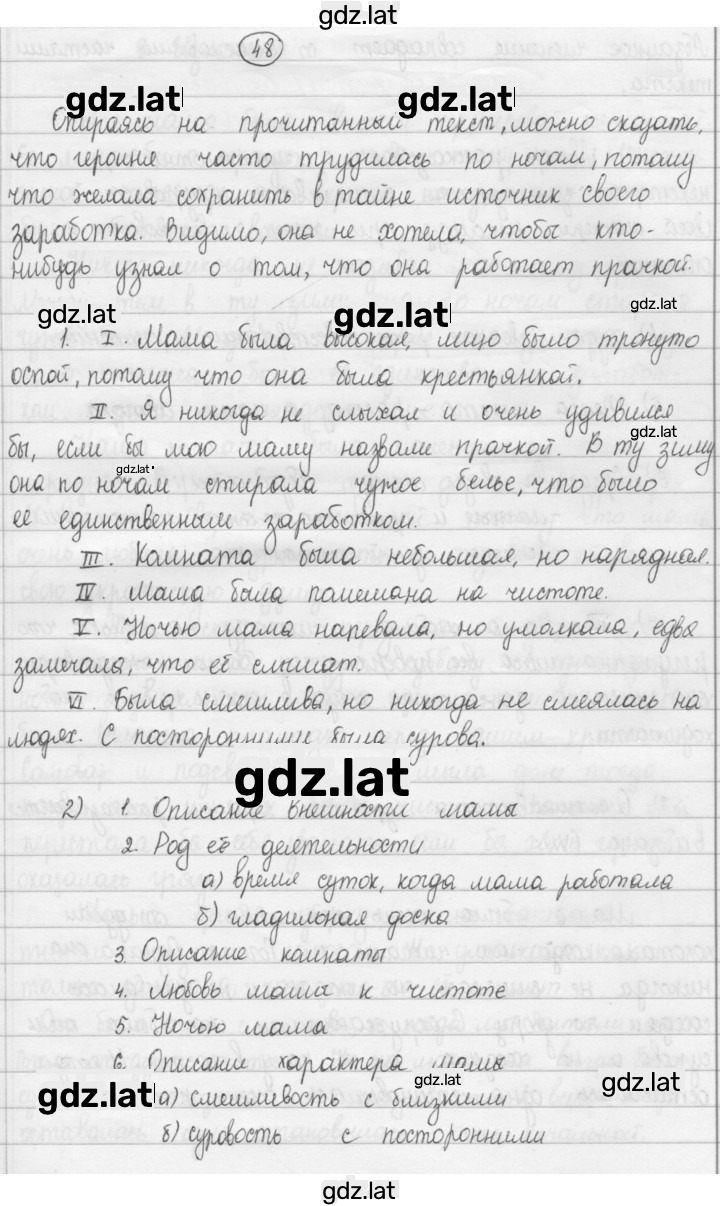 gdz.lat
48
gdz.lat gdz.lat
Опираясь на прочитанный текст, можно сказать,
что героиня часто трудилась по ночам, потому
что желала сохранить в тайне источник своего
заработка. Видимо, она не хотела, чтобы кто-
нибудь узнал о том, что она работает прачкой.
gdz.lat gdz.lat gdz.lat
1. I. Мама была высокая, лицо было тронуто
оспой, потому что она была крестьянкой.
II. Я никогда не слыхал и очень удивился
gdz.lat
бы, если бы мою маму назвали прачкой. В ту зиму
gdz.lat
она по ночам стирала чужое белье, что было
её единственным заработком.
III. Комната была небольшая, но нарядная.
IV. Мама была помешана на чистоте.
V. Ночью мама напевала, но умолкала, едва
замечала, что её слышат.
VI. Была смешлива, но никогда не смеялась на
людях. С посторонними была сурова.
gdz.lat
2) 1. Описание внешности мамы
2. Род её деятельности
а) время суток, когда мама работала
б) гладильная доска
3. Описание комнаты
4. Любовь мамы к чистоте
5. Ночью мама
6. Описание характера мамы
gdz.lat gdz.lat
gdz.lat а) смешливость с близкими
б) суровость с посторонними
gdz.lat